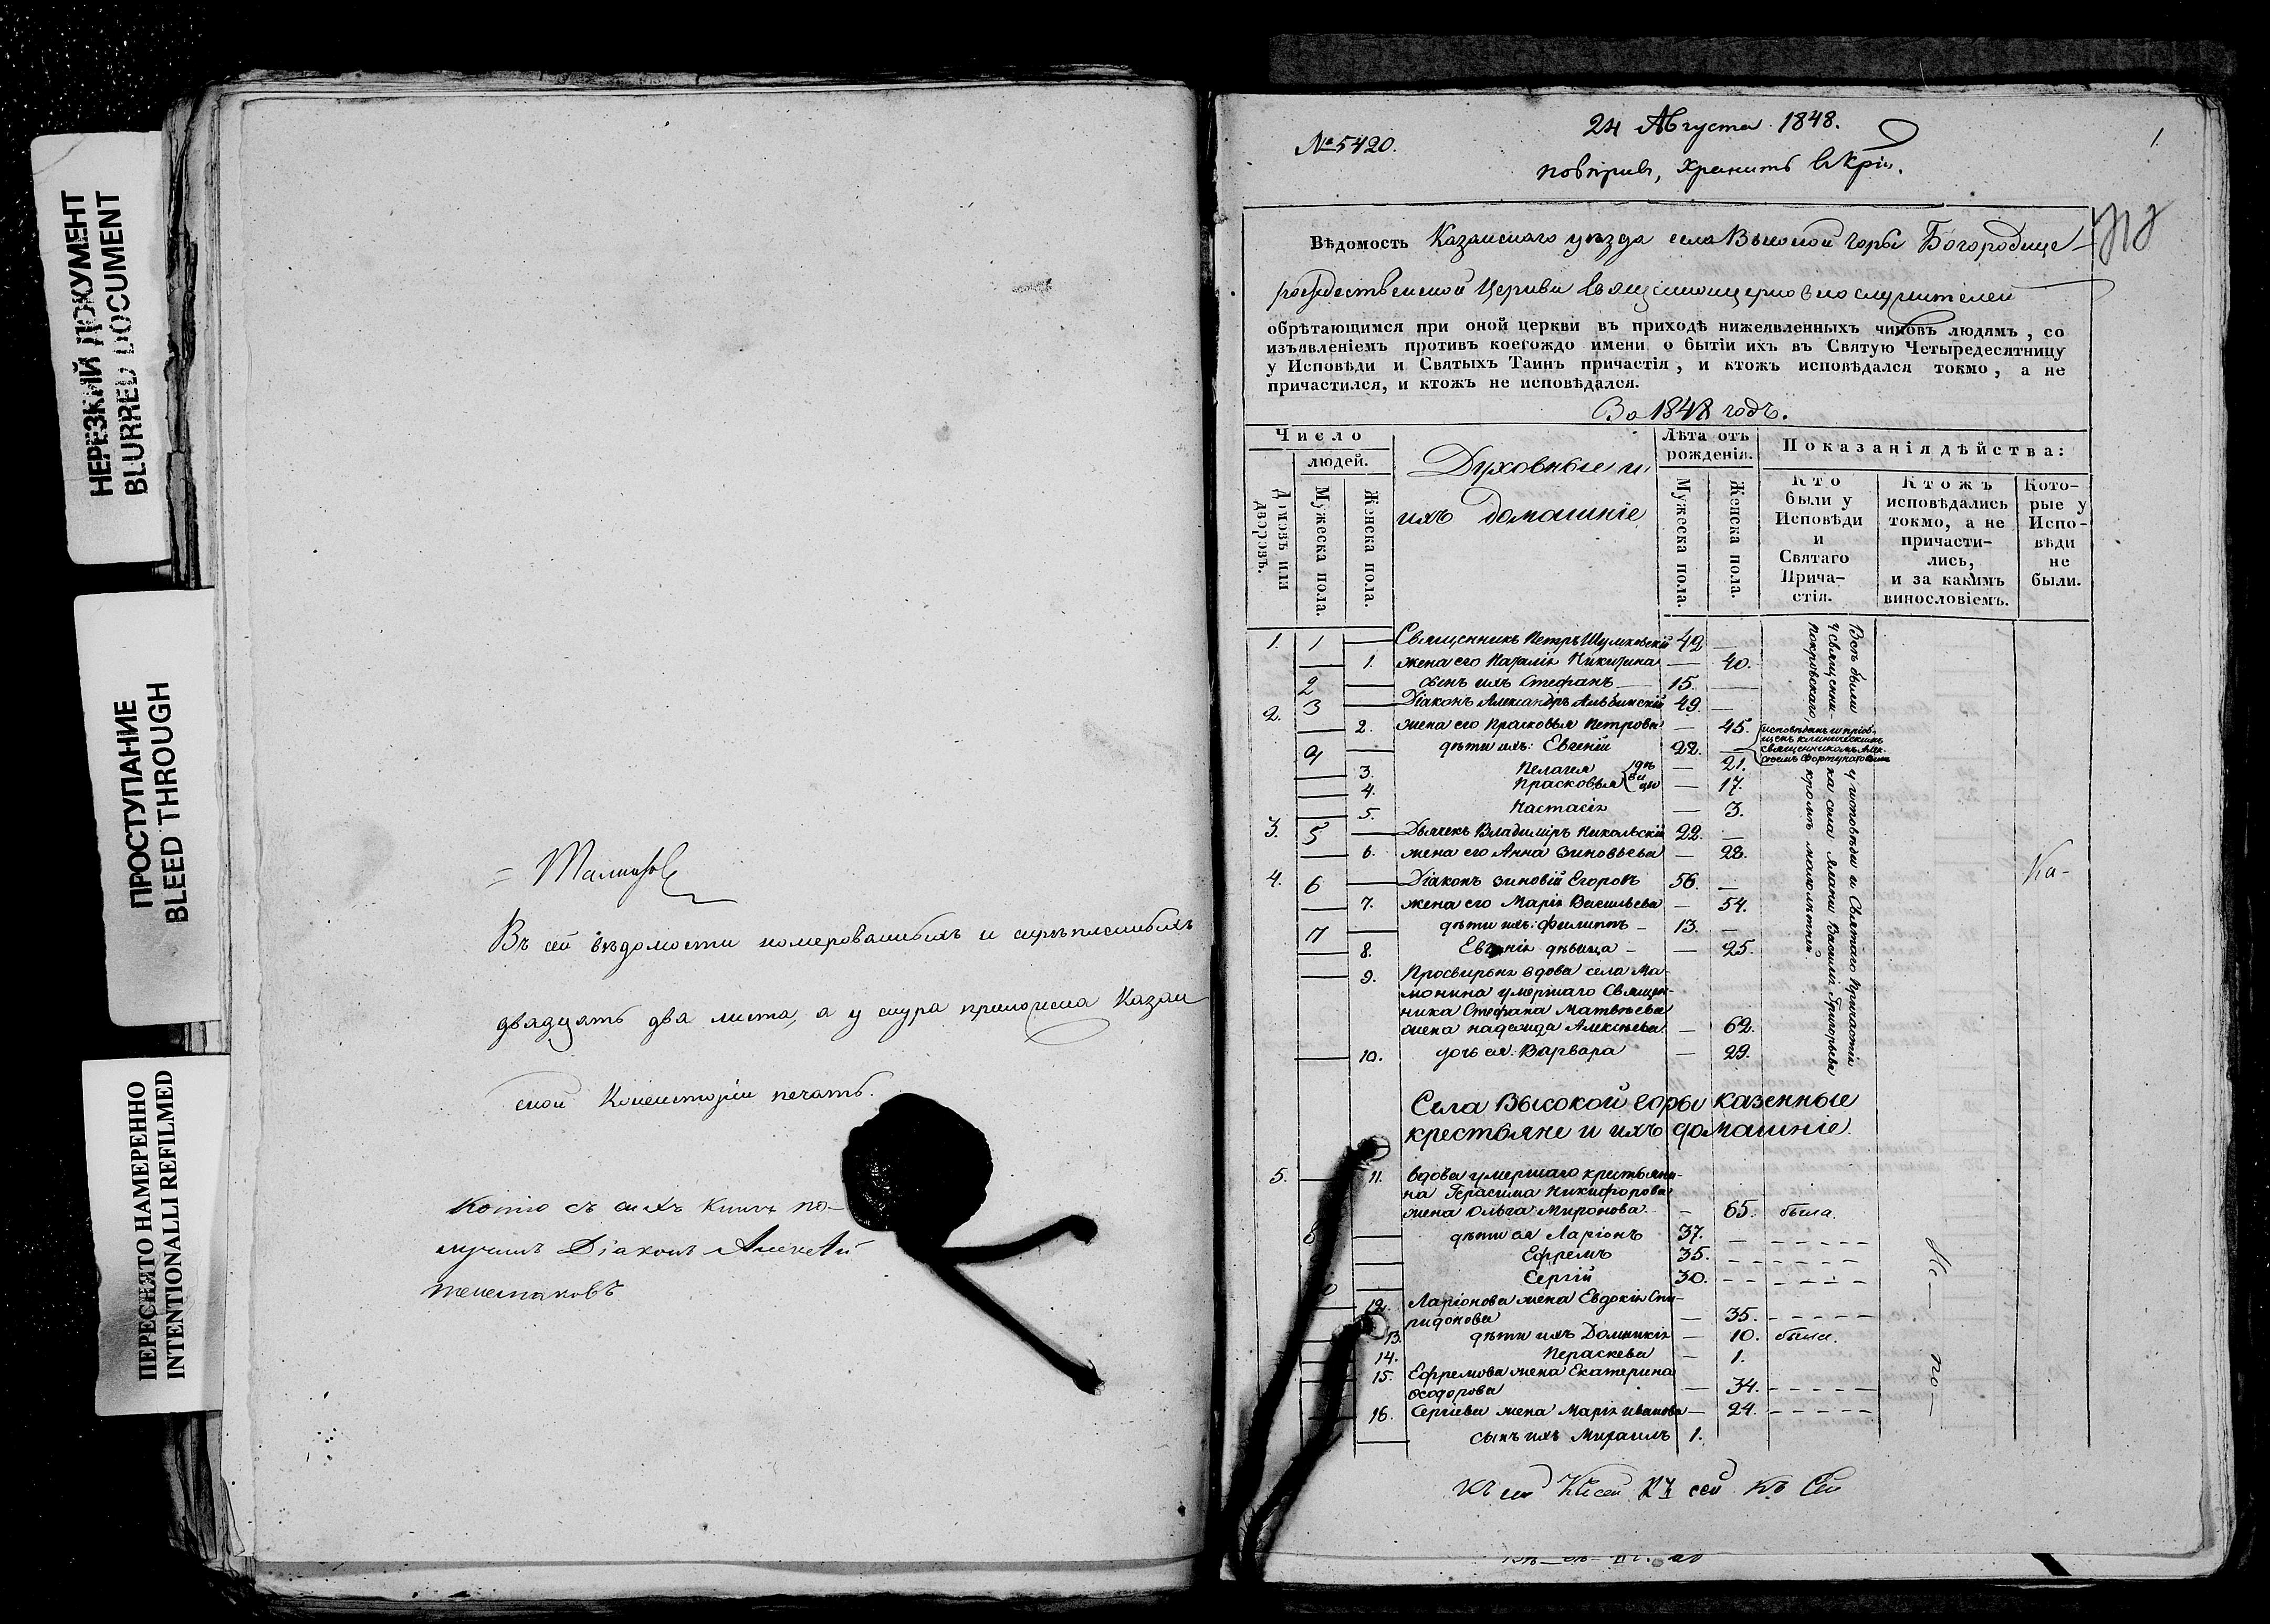 НЕРЕЗКИЙ ДОКУМЕНТ
BLURRED DOCUMENT
ПРОСТУПАНИЕ
BLEED THROUGH
ПЕРЕСНЯТО НАМЕРЕННО
INTENTIONALLI REFILMED
Въ сей вѣдомости номерованныхъ и скрѣпленныхъ
двадцать два листа, а у шнура приложена Казан
ской Консисторіи печать.
Копію съ сихъ книгъ по-
лучилъ Діаконъ Алексѣй
24 Августа 1848.
№ 5420.
1.
повѣрив, хранить
Вѣдомость Казанскаго уѣзда села Высокой горы Богородице-
рождественской Церкви священноцерковнослужителей
обрѣтающимся при оной церкви въ приходѣ нижеявленныхъ чиновъ людямъ, со
изъявленіемъ противъ коегождо имени о бытіи ихъ въ Святую Четыредесятницу
у Исповѣди и Святыхъ Таинъ причастія, и ктожъ исповѣдался токмо, а не
причастился, и ктожъ не исповѣдался.
За 1848 годъ.
Число
людей.
Домовъ или дворовъ.
Мужеска пола.
Женска пола.
Духовные и
ихъ домашніе
Лѣта отъ
рожденія.
Мужеска пола.
Женска пола.
Показанія дѣйства:
Кто
были у
Исповѣди
и
Святаго
Прича-
стія.
Ктожъ
исповѣдались
токмо, а не
причасти-
лись,
и за какимъ
винословіемъ.
Кото-
рые у
Испо-
вѣди
не
были.
1. 1 — Священникъ Петръ Шумковскій 42 —
— 1. жена его Наталія Никитина — 40.
2 — сынъ ихъ Стефанъ — 15. —
2. 3 — Діаконъ Александръ Альбинскій 49. —
2. жена его Прасковья Петрова — 45.
4 — дѣти ихъ: Евгеній 22. —
— 3. Пелагея — 21.
— 4. Прасковья — 17.
дѣвицы
— 5. Настасія — 3.
исповѣданъ и пріоб-
щенъ клиническимъ
священникомъ Алек-
сѣемъ Фортунатовымъ
3. 5 — Дьячекъ Владиміръ Никольскій 22. —
— 6. жена его Анна Зиновьева — 28.
4. 6 — Діаконъ Зиновій Егоровъ 56. —
— 7. жена его Марія Васильева — 54.
7 — дѣти ихъ: Филиппъ — 13. —
— 8. Евгенія дѣвица — — 25.
— 9. Просвирня вдова села Ма-
монина умершаго Священ-
ника Стефана Матвѣева
жена Надежда Алексѣева — 62.
— 10. дочь ея: Варвара — 29.
Всѣ были у исповѣди и Святаго Причастія
у священника села Василія Григорьева
Покровскаго, кромѣ малолѣтней.
Ка-
Села Высокой горы казенные
крестьяне и ихъ домашніе.
5. — 11. вдова умершаго крестьяни-
на Герасима Никифорова
жена Ольга Миронова — 65. была.
8 — дѣти ея Ларіонъ 37. —
— Ефремъ 35.
— Сергій 30.
— 12. Ларіонова жена Евдокія Спи-
ридонова — 35.
— 13. дѣти ихъ Домникія — 10. была.
14. Пераскева — 1.
15. Ефремова жена Екатерина
Ѳеодорова — 34.
16. Сергіева жена Марія Иванова — 24.
— сынъ ихъ Михаилъ 1.
къ сей къ сей къ сей къ сей